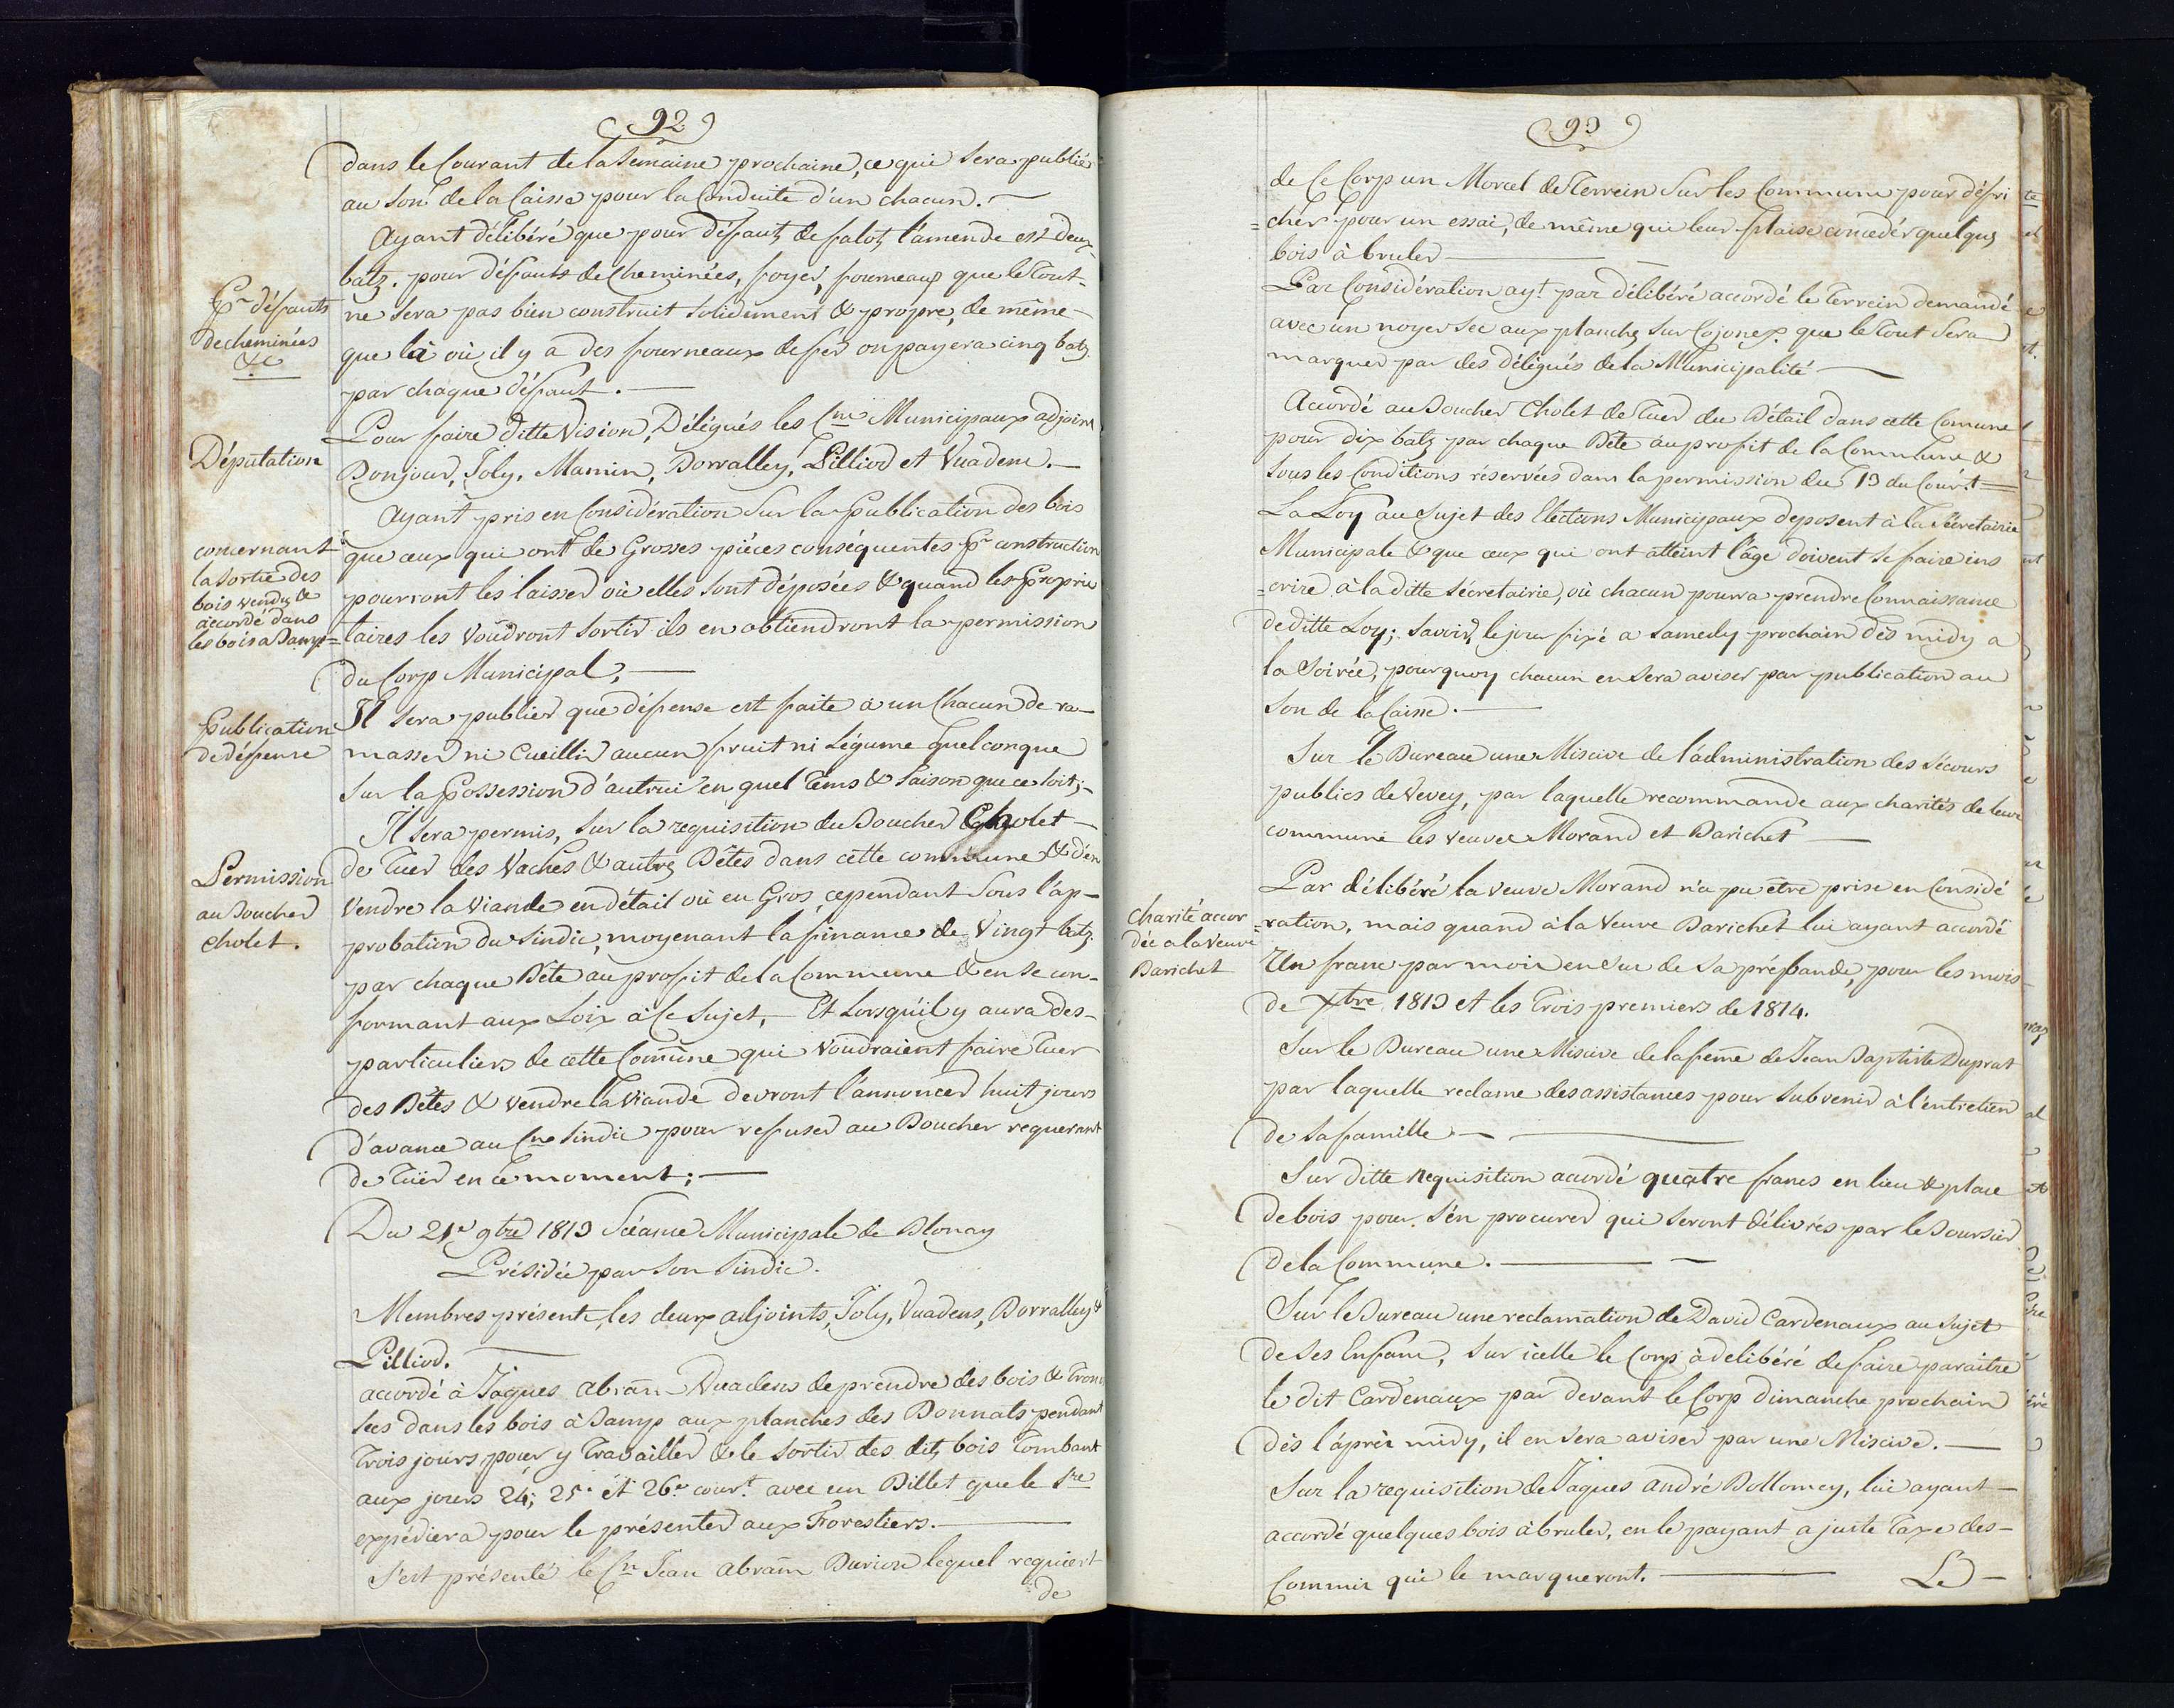 (92)
dans le Courant de la Semaine prochaine, ce qui sera publiér
au son de la Caisse pour la Conduite d'un chacun. —
Ayant délibéré que pour défaut de falot, l'amende est deux
batz. pour défauts de Cheminées, foyer, fourneaux que le tout
Pr défauts
de cheminées
&c
ne sera pas bien construit solidement & propre, de même
que là où il y a des fourneaux de fer on payera cinq batz
par chaque défaut. —
Pour faire ditte Vision, Délégués les Cns Municipaux adjoint
Députation
Bonjour, Joly, Mamin, Dorvalley, Pilliod et Vuadens. —
Ayant pris en Considération Sur la Publication des bois
concernant
la sortie des
bois vendu &
accordé dans
les bois à Damp=
que ceux qui ont de Grosses pièces conséquentes pr construction
pourront les laisser où elles sont déposées & quand les Proprié
taires les Voudront sortir ils en obtiendront la permission
du Corp Municipal, —
Publication
de défense
Il sera publier que défense est faite à un Chacun de ra—
masser ni Cueillir aucun fruit ni Légume quelconque
sur la Possession d'autrui en quel tems & saison que ce soit; —
Il sera permis, sur la requisition du Boucher Cholet —
Permission
au Boucher
cholet.
de tuer des Vaches & autres Bêtes dans cette commune & d'en
Vendre la Viande en détail où en Gros, cependant sous l'ap—
probation du Sindic, moyenant la finance de Vingt batz
par chaque Bête au profit de la Commune & en se con—
formant aux Loix à ce sujet, — Et Lorsqu'il y aura des—
particuliers de cette Comune qui Voudraient faire tuer
des Bêtes & vendre la Viande devront l'annoncer huit jours
d'avance au Cne Sindic pour refuser au Boucher requerant
de tüer en ce moment; —
Du 21e 9bre 1813 Scéance Municipale de Blonay
Présidée par Son Sindic.
Membres présents, les deux adjoints, Joly, Vuadens, Dorvalley &
Pilliod. —
accordé à Jaques Abram Vuadens de prendre des bois & tronc
secs dans les bois à Damp aux planches des Bonnats pendant
trois jours pour y travailler & le sortir des dits bois tombant
aux jours 24; 25. et 26e cour.t avec un Billet que le Sre
expédiera pour le présenter aux Forestiers. —
S'est présenté le Cn Jean Abram Durieu lequel requiert
de
(93)
de Ce Corp un Morcel de Terrein Sur les Commune pour défri
=cher pour un essai, de même qui leur plaise concedér quelques
bois à bruler —
Par Considération ayt par délibéré accordé le Terrein demandé
avec un noyer sec aux planches sur Cojonex. que le tout sera
marquer par des délégués de la Municipalité —
Accordé au Boucher Cholet de tuer du Détail dans cette Comune
pour dix batz par chaque Bête au profit de la Commune &
sous les Conditions réservées dans la permission du 13 du Cour.t —
La Loy au sujet des Elections Municipaux deposent à la Sécretairie
Municipale & que ceux qui ont atteint l'âge doivent se faire ins
=crire à la ditte sécretairie, où chacun pourra prendre Connaissance
de ditte Loy; savoir, le jour fixé a samedy prochain dès midy a
la Soirée, pourquoy chacun en sera aviser par publication au
Son de la Caisse. —
Sur le Bureau une Miscive de l'administration des sécours
publics de Vevey, par laquelle recommande aux charités de leur
commune les veuves Morand et Barichet —
Par délibéré la veuve Morand n'a pu être prise en Considé
charité accor
dée a la Veuve
Barichet
=ration, mais quand à la Veuve Barichet lui ayant accordé
Un franc par mois en sur de sa prébande, pour les mois
de Xbre 1813 et les trois premiers de 1814.
Sur le Bureau une Miscive de la feme de Jean Baptiste Duprat
par laquelle reclame des assistances pour subvenir à l'entretien
de sa famille —
Sur ditte Requisition accordé quatre francs en lieu & place
de bois pour s'en procurer qui seront délivrés par le Boursier
de la Commune. —
Sur le Bureau une reclamation de David Cardenaux au sujet
de ses Enfans, sur icelle le Corp à delibéré de faire paraitre
le dit Cardenaux par devant le Corp dimanche prochain
dès l'après midy, il en sera aviser par une Miscive. —
Sur la requisition de Jaques André Bollomey, lui ayant —
accordé quelques bois à bruler, en le payant a juste Taxe des—
Commis qui le marqueront. —
Le —